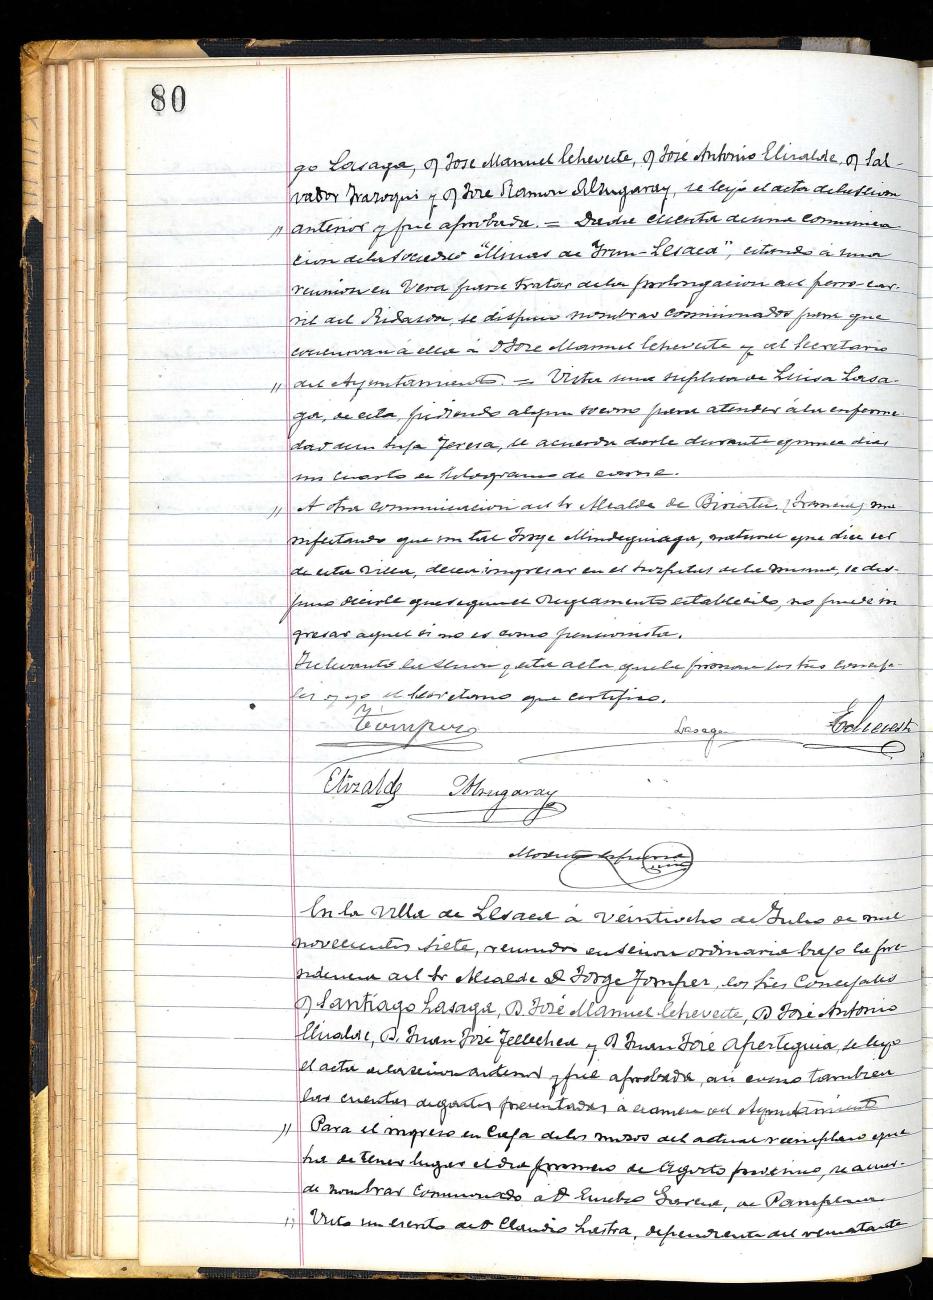 80
go Lasaga, D José Manuel Echeverte, D José Antonio Elizalde, D Sal-
vador Irazoqui y D José Ramon Alzugaray, se leyó el acta de la sesion
〃 anterior y fué aprobada. = Dada cuenta de una comunica
cion de la Sociedad "Minas de Irun-Lesaca", citando á una
reunion en Vera para tratar de la prolongacion del ferro-car-
ril del Bidasoa, se dispuso nombrar comisionados para que
concurran á ella á D José Manuel Echeverte y al Secretario
〃 del Ayuntamiento. = Vista una suplica de Luisa Lasa-
ga, de esta, pidiendo algun socorro para atender á la enferme
dad de su hija Teresa, se acuerda darle durante quince dias
un cuarto de Kilogramo de carne.
〃 A otra comunicacion del Sr Alcalde de Biriatu (Francia) ma
nifestando que un tal Jorge Mindeguiaga, natural que dice ser
de esta villa, desea ingresar en el hospital de la misma, se dis-
puso decirle que segun el Reglamento establecido, no puede in
gresar aquel si no es como pensionista.
Se levantó la sesion y esta acta que la firman los Sres Conceja-
les y yo el Secretario que certifico.
Tompes Lasaga Echeverte
Elizalde Alzugaray
Modesto
En la Villa de Lesaca á veintiocho de Julio de mil
novecientos siete, reunidos en sesion ordinaria bajo la pre-
sidencia del Sr Alcalde D Jorge Tompes, los Sres Concejales
D Santiago Lasaga, D. José Manuel Echeverte, D José Antonio
Elizalde, D. Juan José Tellechea y D Juan José Apesteguia, se leyó
el acta de la sesion anterior y fué aprobada, asi como tambien
las cuentas de gastos presentadas á examen del Ayuntamiento
〃 Para el ingreso en Caja de los mozos del actual reemplazo que
ha de tener lugar el dia primero de Agosto proximo, se acuer-
da nombrar comisionado á D Eusebio , de Pamplona
〃 Visto un escrito de D Claudio Lastra, dependiente del rematante